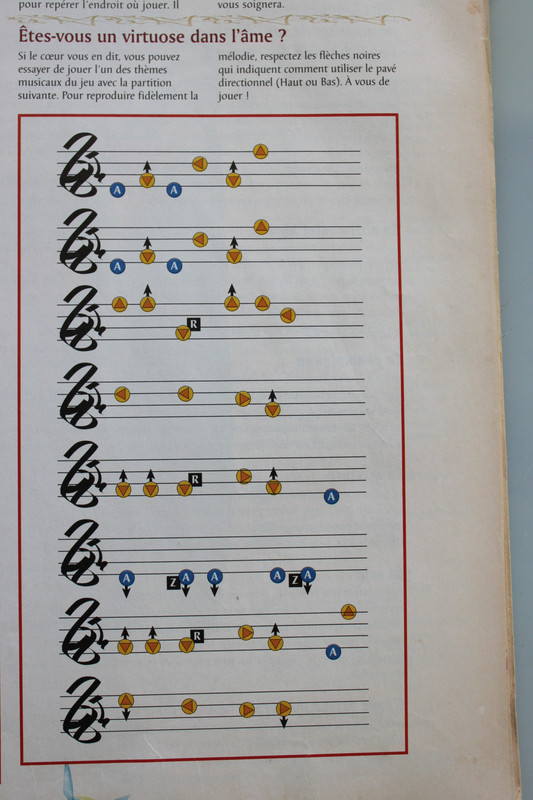 pour repérer l'endroit où jouer. Il
vous soignera.
Êtes-vous un virtuose dans l'âme ?
Si le cœur vous en dit, vous pouvez
essayer de jouer l'un des thèmes
musicaux du jeu avec la partition
suivante. Pour reproduire fidèlement la
mélodie, respectez les flèches noires
qui indiquent comment utiliser le pavé
directionnel (Haut ou Bas). À vous de
jouer !
A A
A A
R
R
A
A A A Z A Z A
R
A